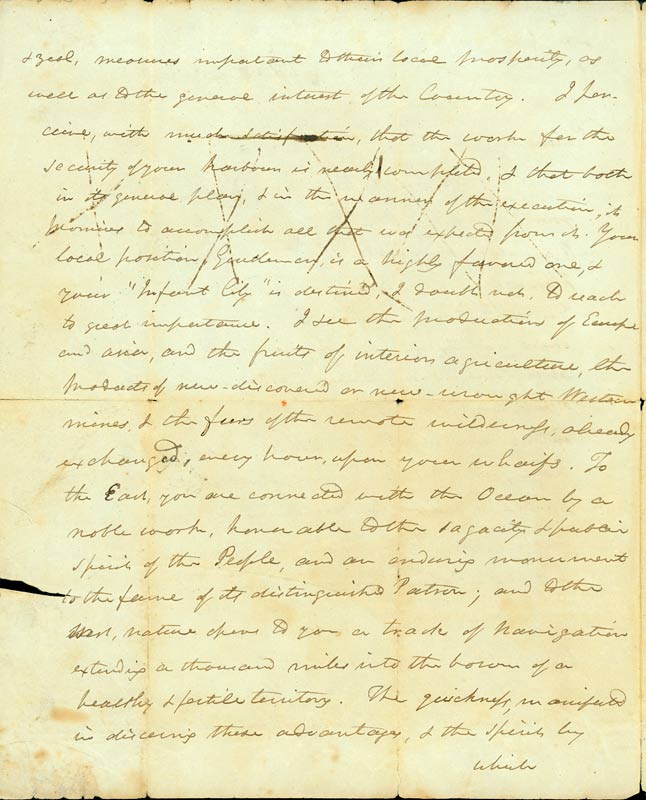 & zeal, measures important to their local prosperity, as
well as to the general interest of the Country. I per-
ceive, with much satisfaction, that the work for the
security of your harbour is nearly completed, & that both
in its general plan, & in the manner of the execution, it
promises to accomplish all that was expected from it. Your
local position, Gentlemen, is a highly favored one, &
your "Infant City" is destined, I doubt not, to reach
to great importance. I see the production of Europe
and asia, and the fruits of interior agriculture, the
products of new-discovered or new-wrought Western
mines, & the furs of the remote wilderness, already
exchanged, every hour, upon your wharfs. To
the East, you are connected with the Ocean by a
noble work, honorable to the sagacity & public
spirit of the People, and an enduring monument
to the fame of its distinguished Patron; and to the
West, nature opens to you a track of navigation
extending a thousand miles into the bosom of a
healthy & fertile territory. The quickness, manifested
in discerning these advantages, & the spirit by
which